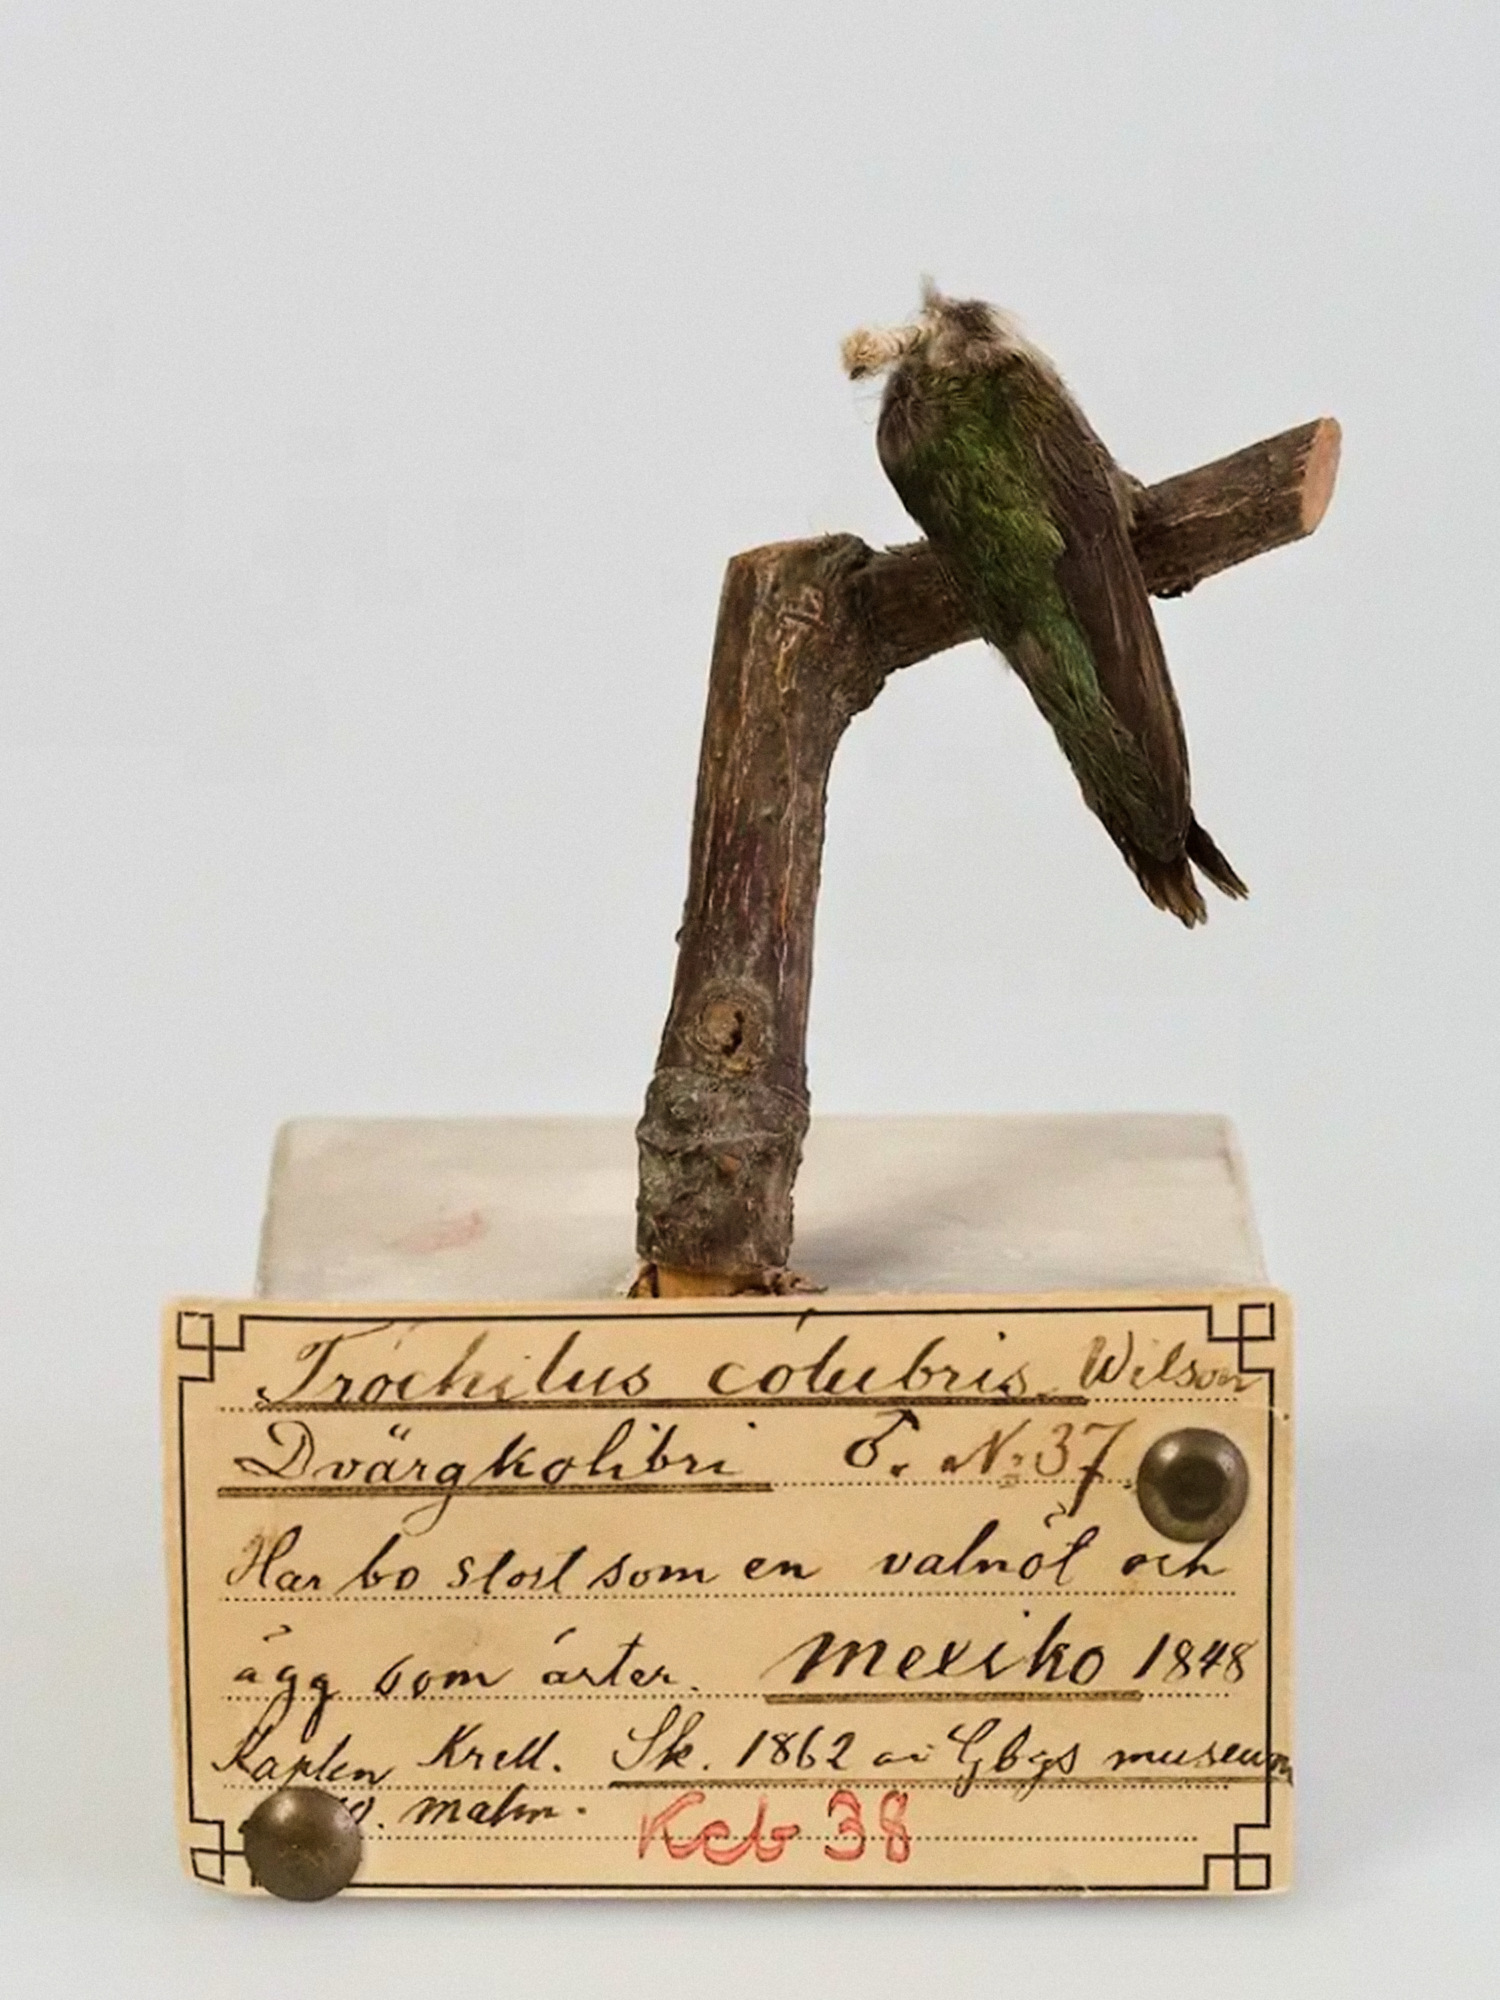 Trochilus colubris. Wilson
Dvärgkolibri ♂. No 37.
Har bo stort som en valnöt och
ägg som ärter. Mexiko 1848
Kapten Krell. Sk. 1862 av Gbgs museum
W. Malm.
Kcb 38